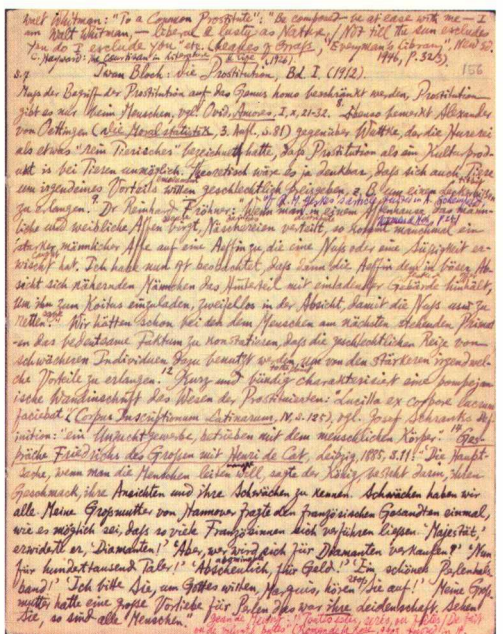 Walt Whitman: "To a Common Prostitute": "Be composed - be at ease with me - I
am Walt Whitman, - liberal & lusty as Nature, / Not till the sun excludes
you do I exclude you" etc. (Leaves of Grass, "Everyman's Library", New
C. Hayward: The Courtesan 1926). 1946, p. 323).
156
S.9 Iwan Bloch: Die Prostitution, Bd. I (1912).
Muß der Begriff der Prostitution auf das Genus homo beschränkt werden, Prostitution
gibt es nur beim Menschen, vgl. Ovid, Amores, I, x, 21-32. 8. Ebenso bemerkt Alexander
von Oettingen (Die Moralstatistik, 3. Aufl., S. 81) gegenüber Wuttke, der die Hurerei
als etwas "rein Tierisches" bezeichnet hatte, daß Prostitution als ein Kulturprod-
ukt is bei Tieren unmöglich. Theoretisch wäre es ja denkbar, daß sich auch Tiere
um irgendeines Vorteils willen geschlechtlich preisgeben, z. B. um einen Leckerbissen
zu erlangen. 9. Dr Reinhard Fröhner: "Wenn man in einem Affenhause, das männ-
liche und weibliche Affen birgt, Näschereien verteilt, so kommt manchmal ein
starker männlicher Affe auf eine Äffin zu, die eine Nuß oder eine Süßigkeit er-
wischt hat. Ich habe nun oft beobachtet, daß dann die Aeffin dem in böser Ab-
sicht sich nähernden Männchen das Hinterteil mit einladender Gebärde hinhält,
um ihn zum Koitus einzuladen, zweifellos in der Absicht, damit die Nuß usw zu
retten". Wir hätten schon bei den dem Menschen am nächsten stehenden Prima-
en das bedeutsame Faktum zu konstatieren, daß die geschlechtlichen Reize vom
schwächeren Individuen dazu benutzt werden, um von den Stärkeren irgendwel-
che Vorteile zu erlangen. 12 Kurz und bündig charakterisiert eine pompejan-
ische Wandinschrift das Wesen der Prostituierten: Lucilla ex corpore lucrum
faciebat (Corpus Inscriptionum Latinarum, IV, S. 125), vgl. Josef Schranks Def-
inition: "ein Unzuchtgewerbe, betrieben mit dem menschlichen Körper. 14 Ges-
präche Friedrichs des Großen mit Henri de Catt, Leipzig, 1885, S. 11: "Die Haupt-
sache, wenn man die Menschen leiten will, sagte der König, besteht darin, ihren
Geschmack, ihre Ansichten und ihre Schwächen zu kennen. Schwächen haben wir
alle. Meine Großmutter von Hannover fragte den französischen Gesandten einmal,
wie es möglich sei, daß so viele Französinnen sich verführen ließen. 'Majestät,'
erwiderte er, 'Diamanten!' 'Aber, wer wird sich für Diamanten verkaufen?' 'Nun
für hunderttausend Taler!' 'Abscheulich, für Geld!' 'Ein schönes Perlenhals-
band!' 'Ich bitte Sie, um Gottes willen, Marquis, hören Sie auf!' Meine Groß-
mutter hatte eine große Vorliebe für Perlen, das war ihre Leidenschaft. Sehen
Sie, so sind alle Menschen."